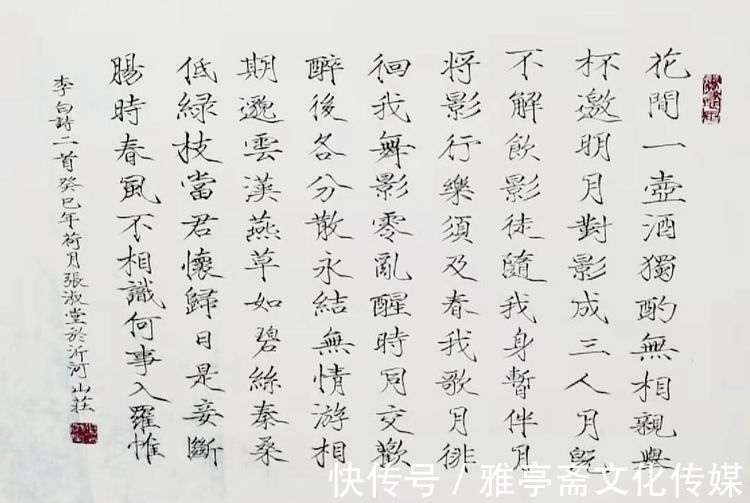 花間一壺酒獨酌無相親舉
杯邀明月對影成三人月既
不解飲影徒隨我身暫伴月
將影行樂須及春我歌月徘
徊我舞影零亂醒時同交歡
醉後各分散永結無情游相
期邈雲漢燕草如碧絲秦桑
低綠枝當君懷歸日是妾斷
腸時春風不相識何事入羅帷
李白詩二首癸巳年荷月張淑堂於沂河山莊
快传号 / 雅亭斋文化传媒